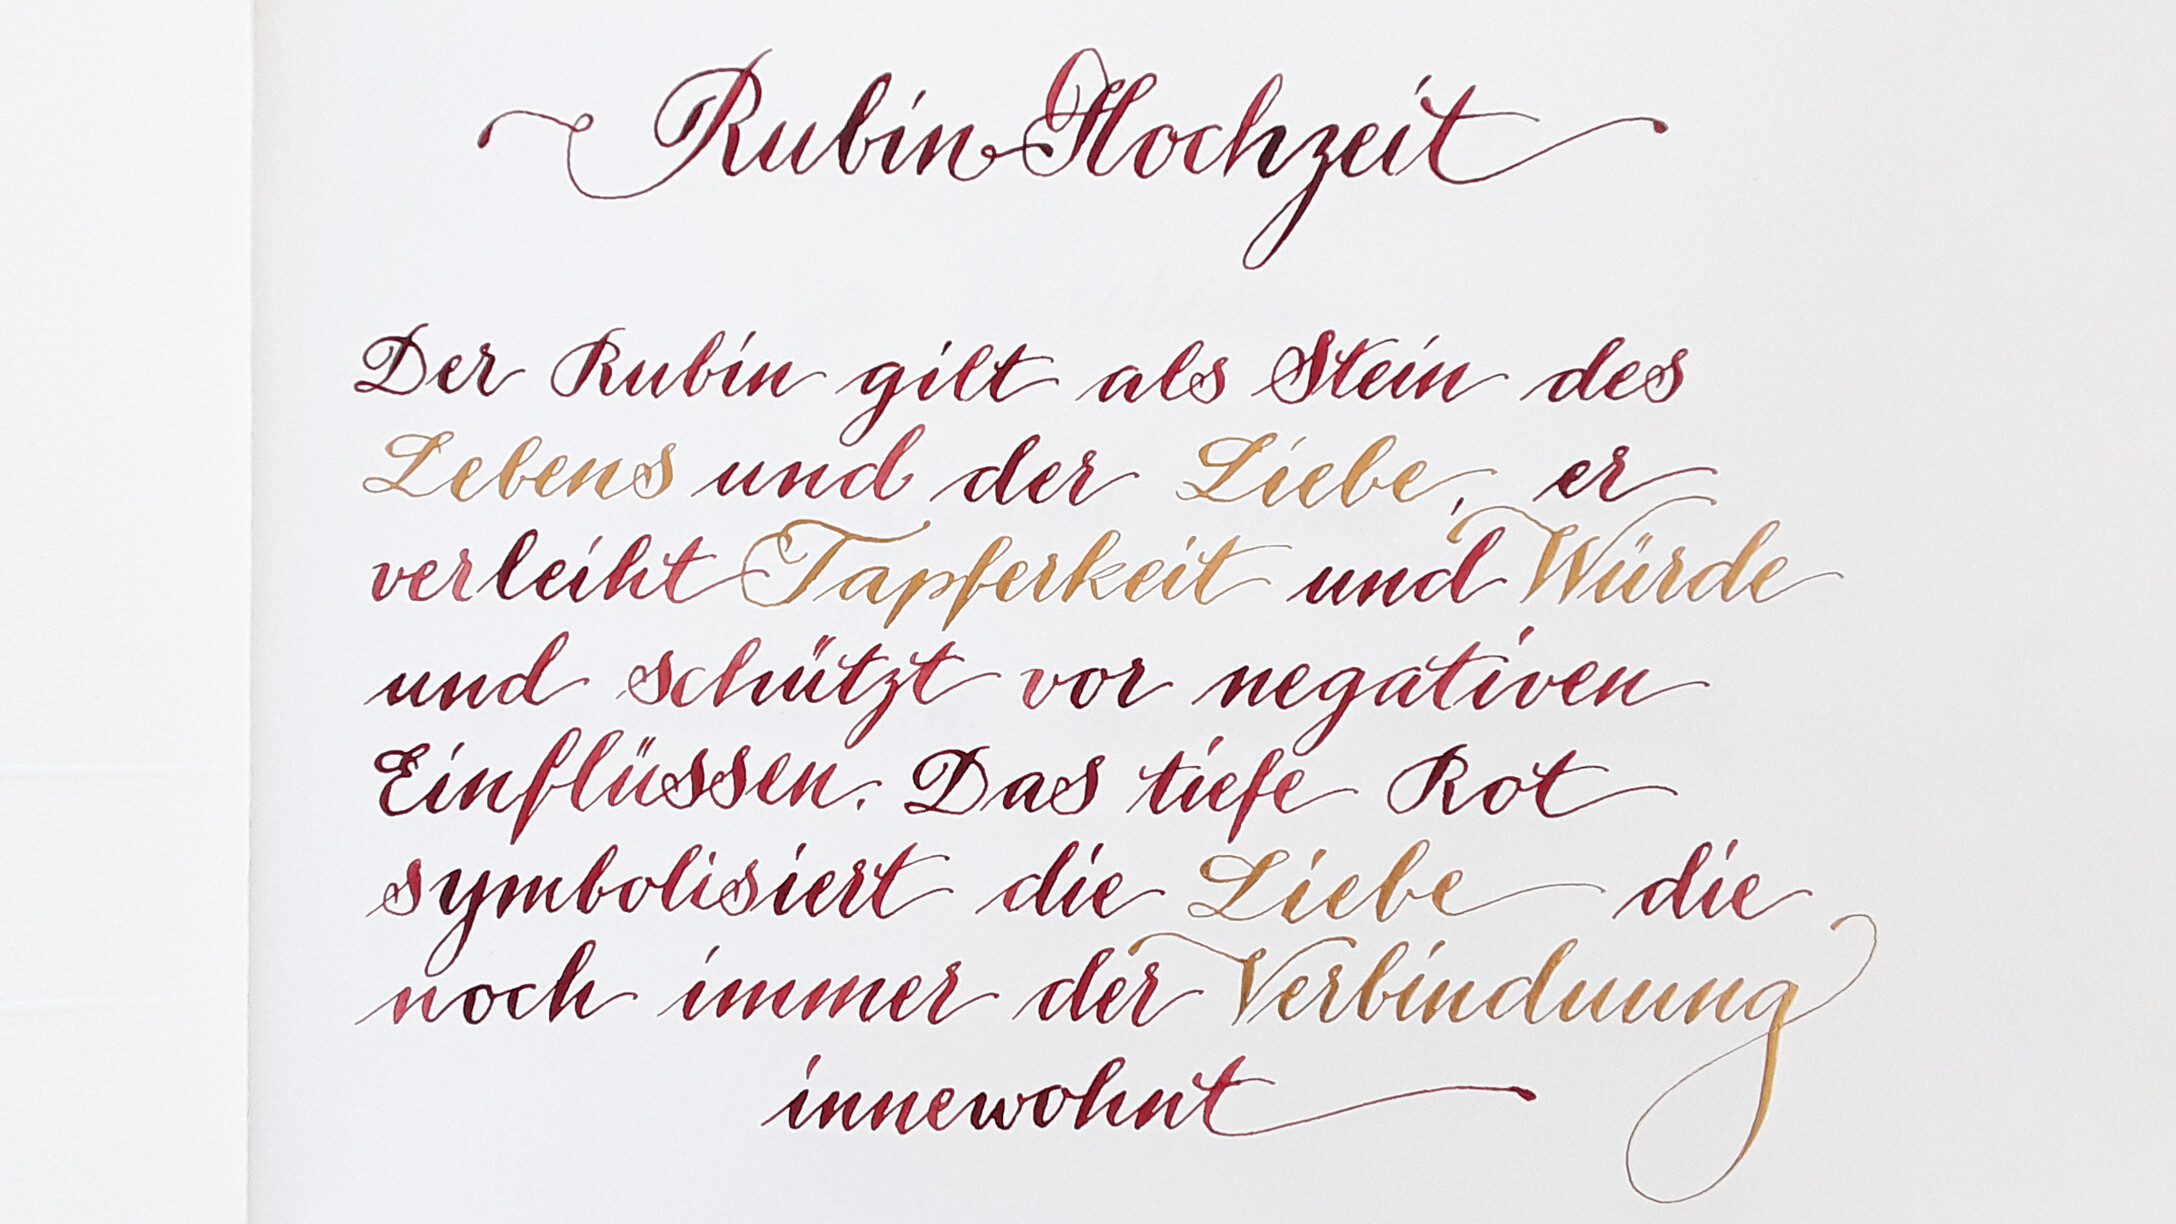 Rubin Hochzeit
Der Rubin gilt als Stein des
Lebens und der Liebe, er
verleiht Tapferkeit und Würde
und schützt vor negativen
Einflüssen. Das tiefe Rot
symbolisiert die Liebe die
noch immer der Verbinduung
innewohnt